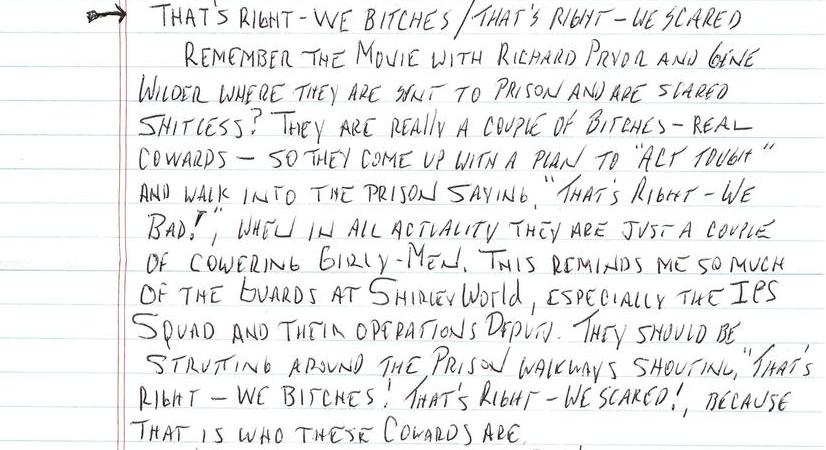 THAT'S RIGHT - WE BITCHES / THAT'S RIGHT - WE SCARED
REMEMBER THE MOVIE WITH RICHARD PRYOR AND GENE
WILDER WHERE THEY ARE SENT TO PRISON AND ARE SCARED
SHITLESS? THEY ARE REALLY A COUPLE OF BITCHES - REAL
COWARDS - SO THEY COME UP WITH A PLAN TO "ACT TOUGH"
AND WALK INTO THE PRISON SAYING, "THAT'S RIGHT - WE
BAD!", WHEN IN ALL ACTUALITY THEY ARE JUST A COUPLE
OF COWERING GIRLY-MEN. THIS REMINDS ME SO MUCH
OF THE GUARDS AT SHIRLEY WORLD, ESPECIALLY THE IPS
SQUAD AND THEIR OPERATIONS DEPUTY. THEY SHOULD BE
STRUTTING AROUND THE PRISON WALKWAYS SHOUTING, "THAT'S
RIGHT - WE BITCHES! THAT'S RIGHT - WE SCARED!, BECAUSE
THAT IS WHO THESE COWARDS ARE.